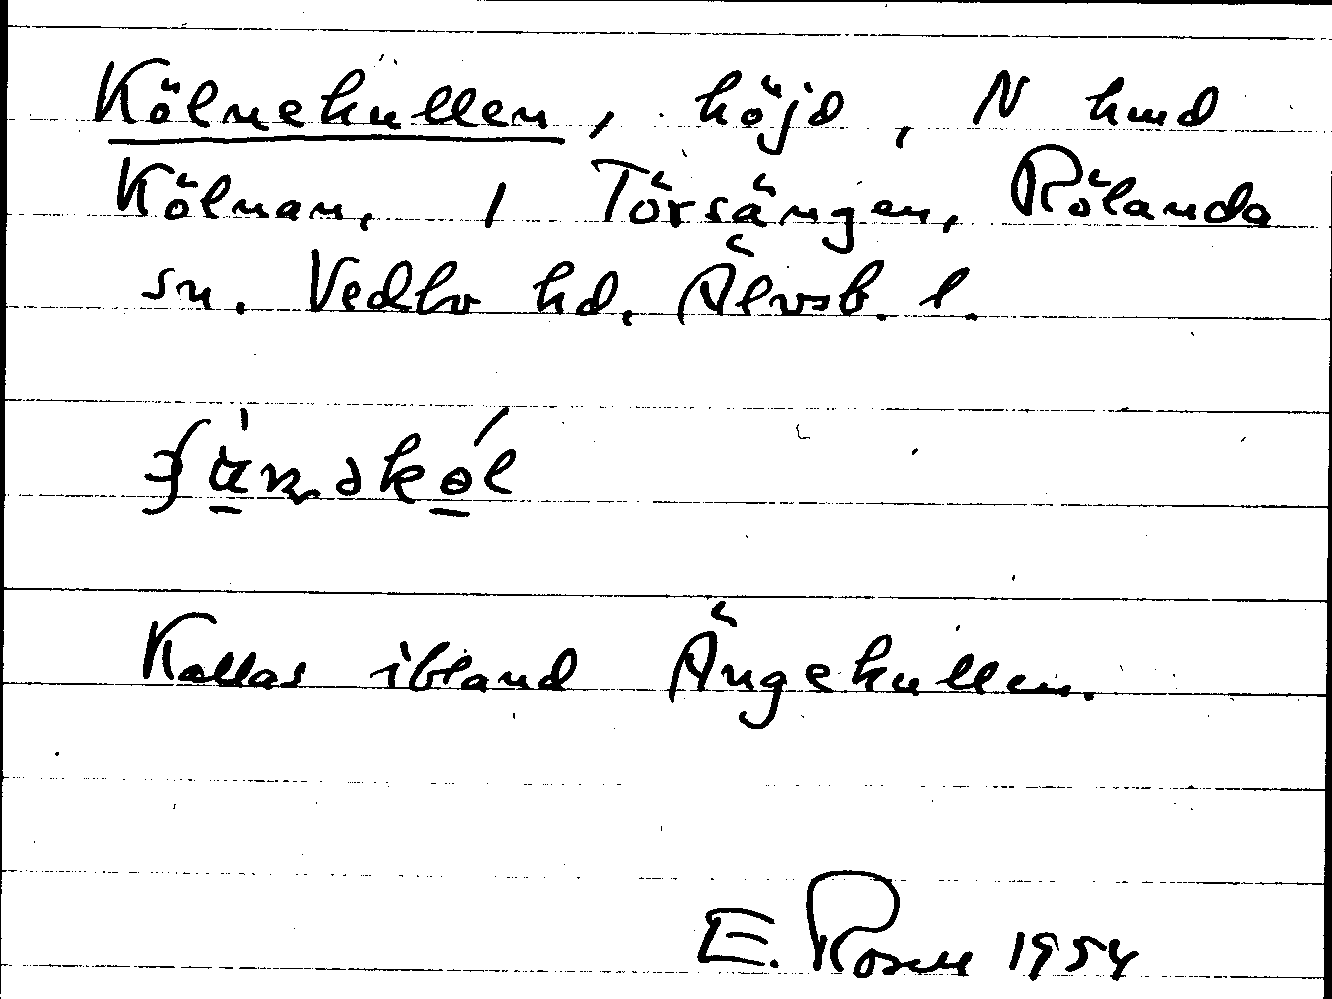 Kölnekullen, höjd, N hmd
Kölnan, 1 Törsängen, Rölanda
sn. Vedbo hd, Älvsb. l.
Kallas ibland Ängekullen.
E. Rosell 1954